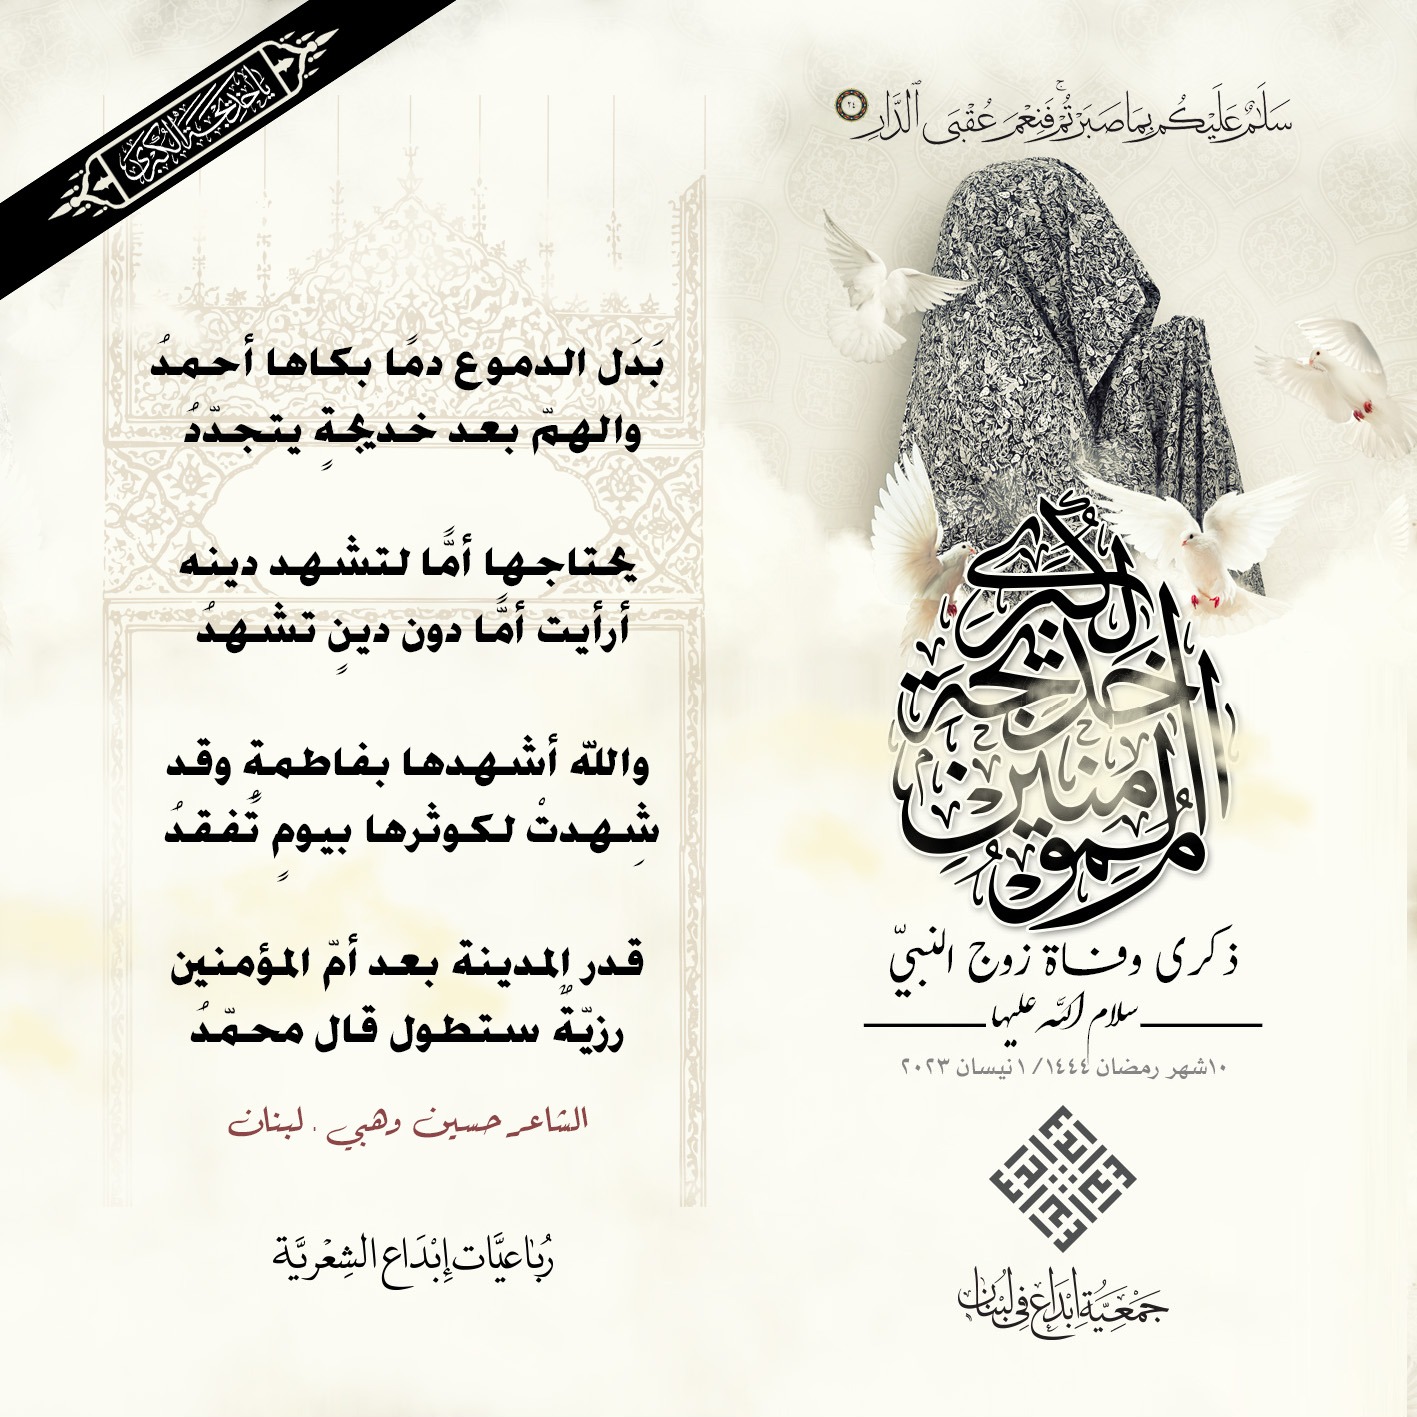 يا خديجة الكبرى
سَلَامٌ عَلَيْكُم بِمَا صَبَرْتُمْ ۚ فَنِعْمَ عُقْبَى ٱلدَّارِ ٢٤
بَدَل الدموع دمًا بكاها أحمدُ
والهمّ بعد خديجةٍ يتجدّدُ
يحتاجها أمًّا لتشهد دينه
أرأيت أمًّا دون دينٍ تشهدُ
والله أشهدها بفاطمةٍ وقد
شهدتْ لكوثرها بيومٍ تُفقدُ
قدر المدينة بعد أمّ المؤمنين
رزيّةٌ ستطول قال محمّدُ
الشاعر حسين وهبي . لبنان
رُبَاعيَّات إِبْدَاع الشِعْريَّة
أم المؤمنين
خديجة
الكبرى
ذكرى وفاة زوج النبيّ
سلام الله عليها
١٠شهر رمضان ١٤٤٤/ ١نيسان ٢٠٢٣
إبداع إبداع إبداع إبداع
جَمْعِيَّة إبْدَاع فِي لبْنَان